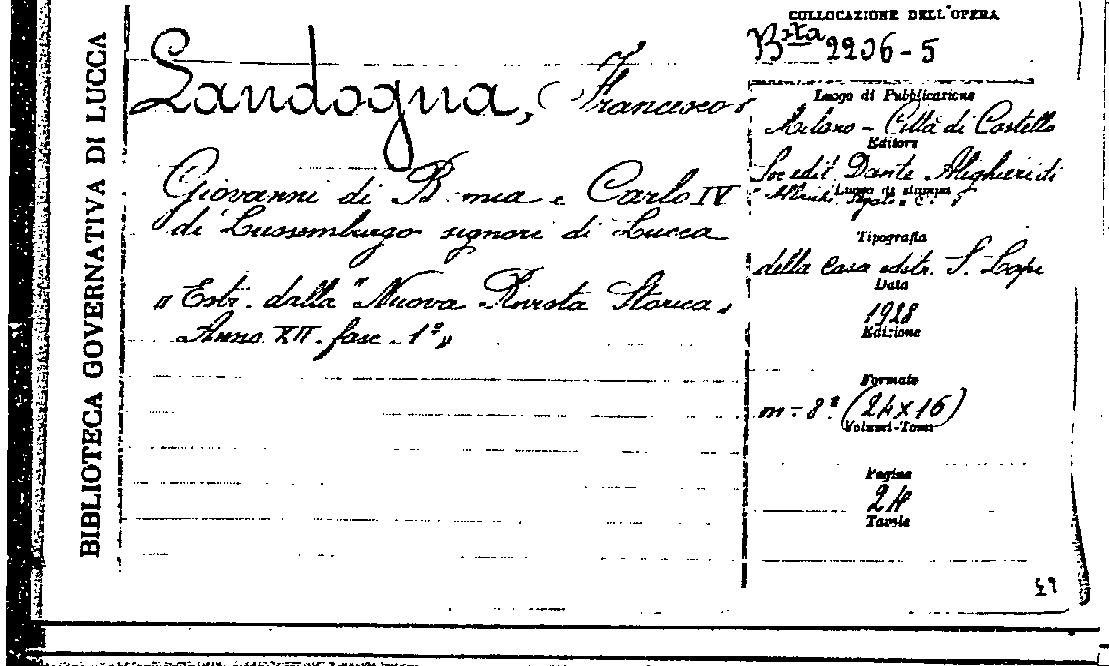 BIBLIOTECA GOVERNATIVA DI LUCCA
Landogna, Francesco
Giovanni di B mia e Carlo IV
di Lussemburgo signori di Lucca
" Estr. dalla "Nuova Rivista Storica,
Anno XII. fasc. 1º "
COLLOCAZIONE DELL'OPERA
Bta 2206-5
Luogo di Pubblicazione
Milano - Città di Castello
Editore
Soc. edit. Dante Alighieri di
Luogo di stampa
Tipografia
della Casa editr. S. Lapi
Data
1928
Edizione
Formato
in-8º (24x16)
Volumi-Tomi
Pagine
24
Tavole